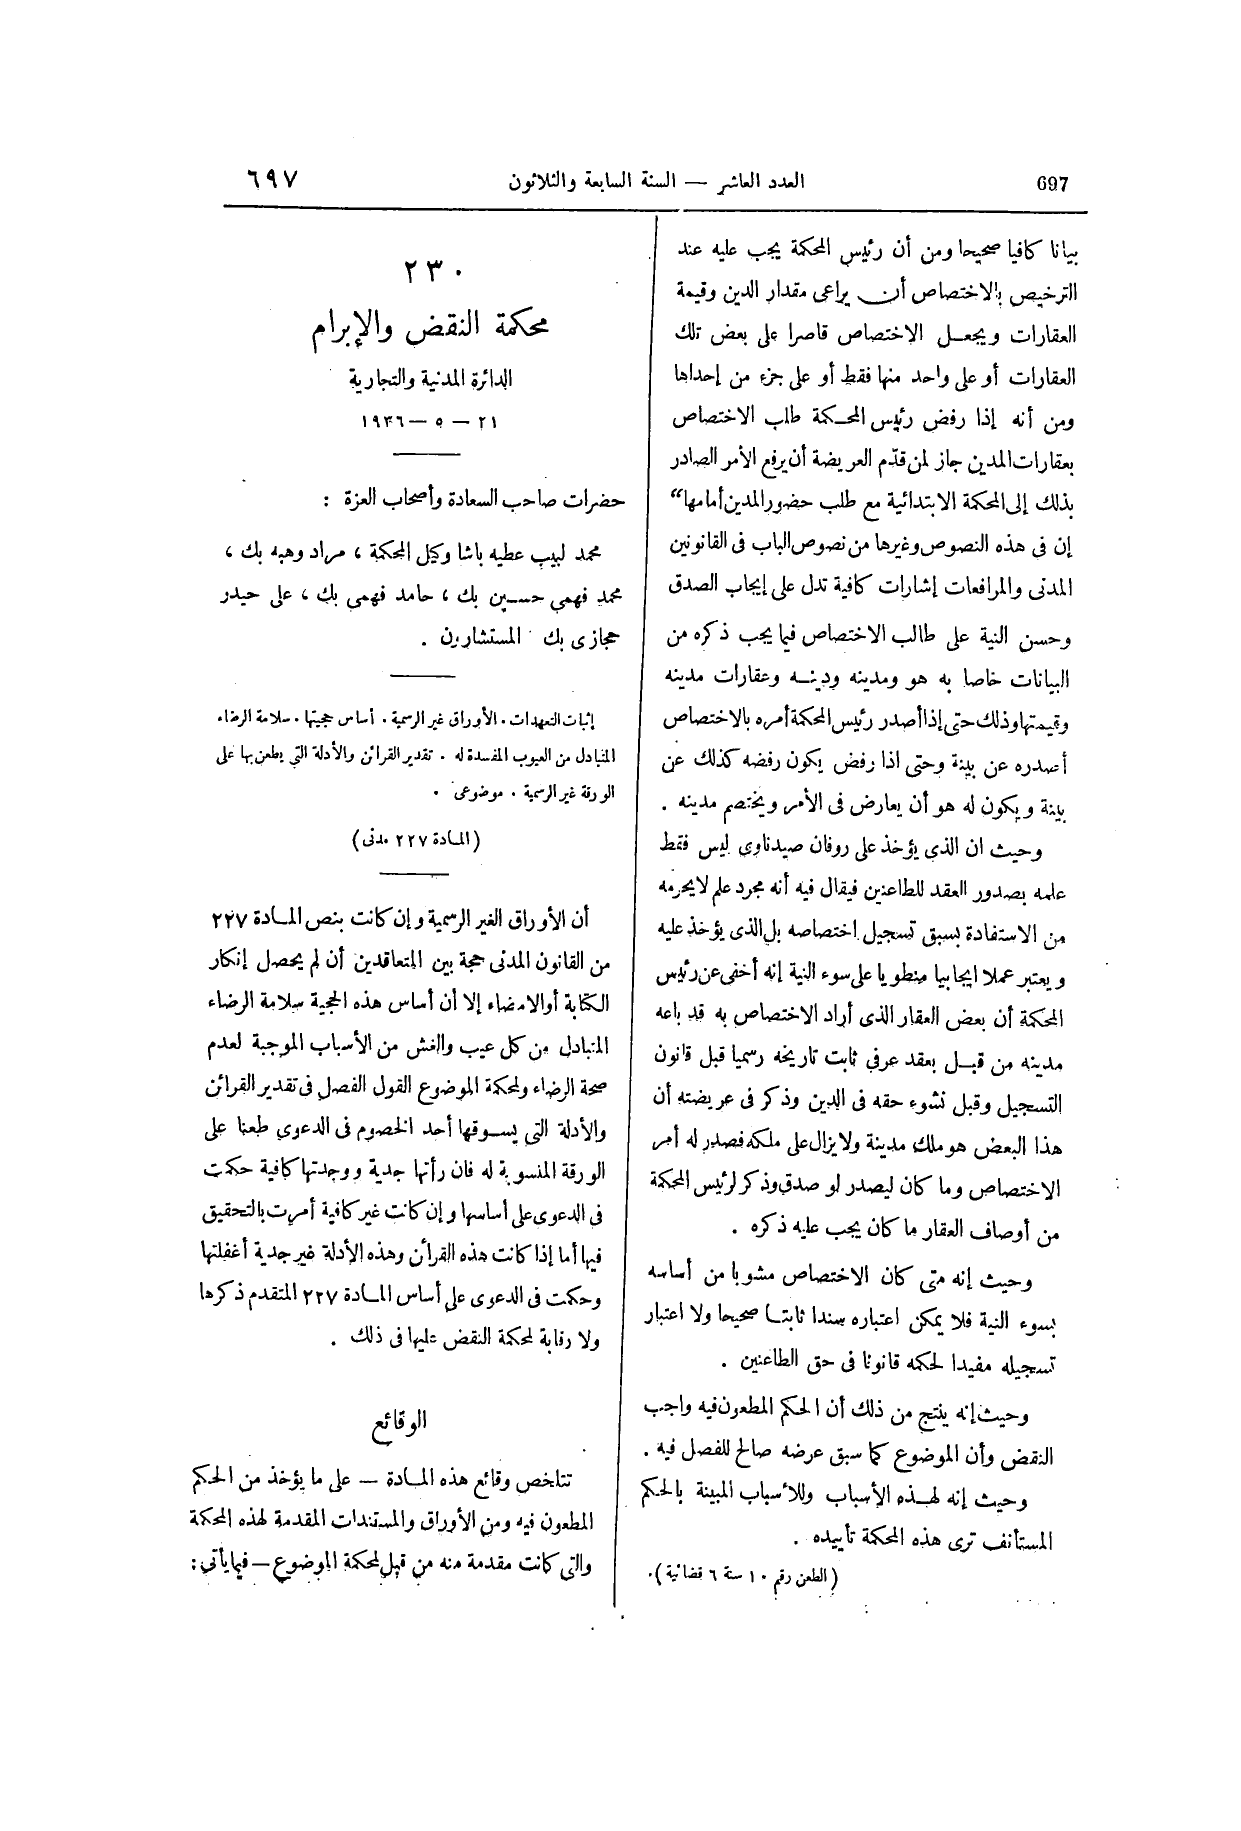 697
العدد العاشر — السنة السابعة والثلاثون
٦٩٧
بيانا كافيا صحيحا ومن أن رئيس المحكمة يجب عليه عند
الترخيص بالاختصاص أن يراعى مقدار الدين وقيمة
العقارات ويجعل الاختصاص قاصرا على بعض تلك
العقارات أو على واحد منها فقط أو على جزء من إحداها
ومن أنه إذا رفض رئيس المحكمة طلب الاختصاص
بعقارات المدين جاز لمن قدّم العريضة أن يرفع الأمر الصادر
بذلك إلى المحكمة الابتدائية مع طلب حضور المدين أمامها“
إن فى هذه النصوص وغيرها من نصوص الباب فى القانونين
المدنى والمرافعات إشارات كافية تدل على إيجاب الصدق
وحسن النية على طالب الاختصاص فيما يجب ذكره من
البيانات خاصا به هو ومدينه ودينه وعقارات مدينه
وقيمتها وذلك حتى إذا أصدر رئيس المحكمة أمره بالاختصاص
أصدره عن بينة وحتى اذا رفض يكون رفضه كذلك عن
بينة ويكون له هو أن يعارض فى الأمر ويختصم مدينه .
وحيث ان الذى يؤخذ على روفان صيدناوى ليس فقط
علمه بصدور العقد للطاعنين فيقال فيه أنه مجرد علم لا يحرمه
من الاستفادة بسبق تسجيل اختصاصه بل الذى يؤخذ عليه
ويعتبر عملا ايجابيا منطويا على سوء النية إنه أخفى عن رئيس
المحكمة أن بعض العقار الذى أراد الاختصاص به قد باعه
مدينه من قبل بعقد عرفى ثابت تاريخه رسميا قبل قانون
التسجيل وقبل نشوء حقه فى الدين وذكر فى عريضته أن
هذا البعض هو ملك مدينة ولا يزال على ملكه فصدر له أمر
الاختصاص وما كان ليصدر لو صدق وذكر لرئيس المحكمة
من أوصاف العقار ما كان يجب عليه ذكره .
وحيث إنه متى كان الاختصاص مشوبا من أساسه
بسوء النية فلا يمكن اعتباره سندا ثابتا صحيحا ولا اعتبار
تسجيله مفيدا لحكمه قانونا فى حق الطاعنين .
وحيث إنه ينتج من ذلك أن الحكم المطعون فيه واجب
النقض وأن الموضوع كما سبق عرضه صالح للفصل فيه .
وحيث إنه لهذه الأسباب وللأسباب المبينة بالحكم
المستأنف ترى هذه المحكمة تأييده .
(الطعن رقم ١٠ سنة ٦ قضائية) .
٢٣٠
محكمة النقض والإبرام
الدائرة المدنية والتجارية
٢١ — ٥ — ١٩٣٦
حضرات صاحب السعادة وأصحاب العزة :
محمد لبيب عطيه باشا وكيل المحكمة ، مراد وهبه بك ،
محمد فهمى حسين بك ، حامد فهمى بك ، على حيدر
حجازى بك المستشارين .
إثبات التعهدات . الأوراق غير الرسمية . أساس حجيتها . سلامة الرضاء
المتبادل من العيوب المفسدة له . تقدير القرائن والأدلة التى يطعن بها على
الورقة غير الرسمية . موضوعى .
(المادة ٢٢٧ مدنى)
أن الأوراق الغير الرسمية وإن كانت بنص المادة ٢٢٧
من القانون المدنى حجة بين المتعاقدين أن لم يحصل إنكار
الكتابة أو الامضاء إلا أن أساس هذه الحجية سلامة الرضاء
المتبادل من كل عيب والغش من الأسباب الموجبة لعدم
صحة الرضاء ولمحكمة الموضوع القول الفصل فى تقدير القرائن
والأدلة التى يسوقها أحد الخصوم فى الدعوى طعنا على
الورقة المنسوبة له فان رأتها جدية ووجدتها كافية حكمت
فى الدعوى على أساسها وإن كانت غير كافية أمرت بالتحقيق
فيها أما إذا كانت هذه القرائن وهذه الأدلة غير جدية أغفلتها
وحكمت فى الدعوى على أساس المادة ٢٢٧ المتقدم ذكرها
ولا رقابة لمحكمة النقض عليها فى ذلك .
الوقائع
تتلخص وقائع هذه المادة — على ما يؤخذ من الحكم
المطعون فيه ومن الأوراق والمستندات المقدمة لهذه المحكمة
والتى كانت مقدمة منه من قبل لمحكمة الموضوع — فيما يأتى :